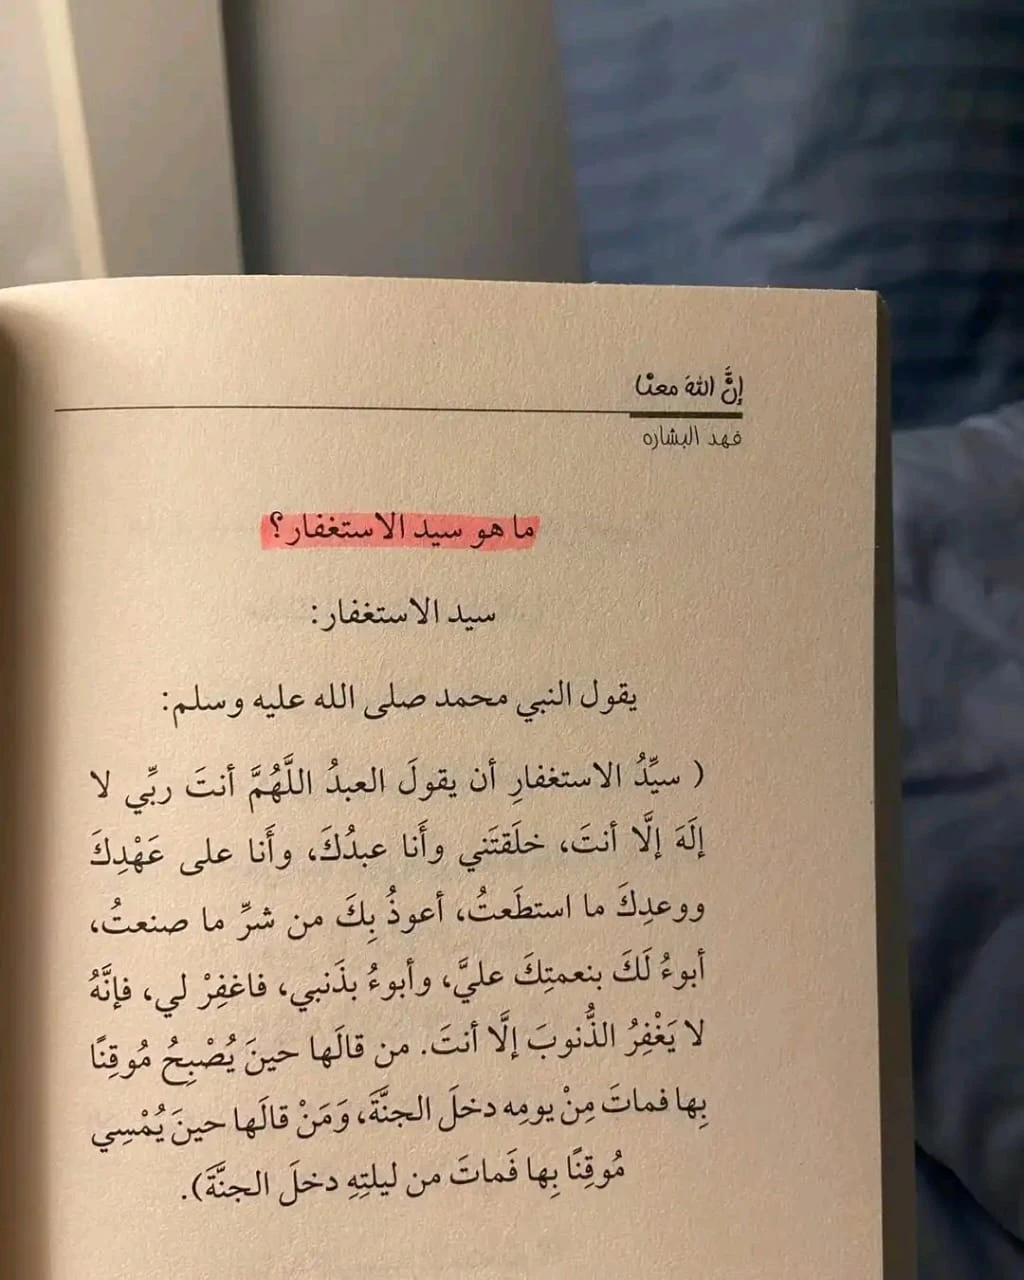 إنَّ اللهَ معنْا
فهد البشاره
ما هو سيد الاستغفار؟
سيد الاستغفار:
يقول النبي محمد صلى الله عليه وسلم:
( سيِّدُ الاستغفارِ أن يقولَ العبدُ اللَّهُمَّ أنتَ ربِّي لا
إلَهَ إلَّا أنتَ، خلَقتَني وأَنا عبدُكَ، وأَنا على عَهْدِكَ
ووعدِكَ ما استطَعتُ، أعوذُ بِكَ من شرِّ ما صنعتُ،
أبوءُ لَكَ بنعمتِكَ عليَّ، وأبوءُ بذَنبي، فاغفِرْ لي، فإنَّهُ
لا يَغْفِرُ الذُّنوبَ إلَّا أنتَ. من قالَها حينَ يُصْبِحُ مُوقِنًا
بِها فماتَ مِنْ يومِه دخلَ الجنَّةَ، وَمَنْ قالَها حينَ يُمْسِي
مُوقِنًا بِها فَماتَ من ليلتِهِ دخلَ الجنَّةَ).